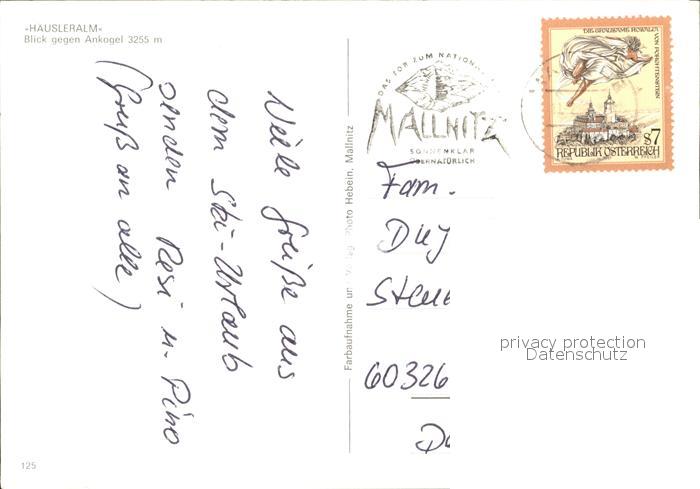 »HÄUSLERALM«
Blick gegen Ankogel 3255 m
Viele Grüße aus
dem Ski-Urlaub
senden Resi u. Pino
(Gruß an alle)
125
Farbaufnahme und Verlag Photo Hebein, Mallnitz
DAS TOR ZUM NATIONAL
MALLNITZ
SONNENKLAR
ÜBERNATÜRLICH
DIE GRAUSAME ROSALIA VON FORCHTENSTEIN
S7
REPUBLIK ÖSTERREICH
Fam.
60326
privacy protection
Datenschutz